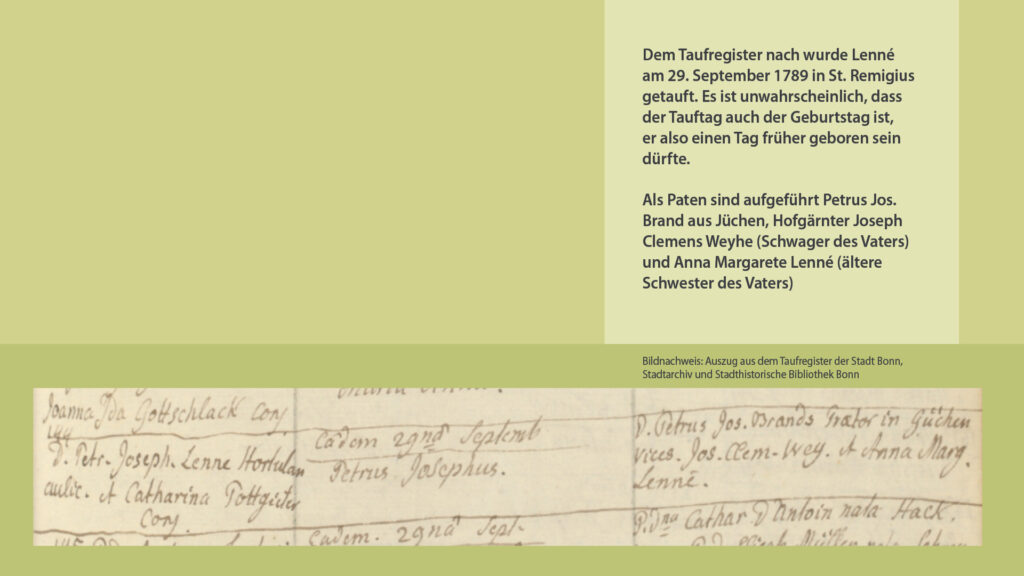 Dem Taufregister nach wurde Lenné
am 29. September 1789 in St. Remigius
getauft. Es ist unwahrscheinlich, dass
der Tauftag auch der Geburtstag ist,
er also einen Tag früher geboren sein
dürfte.
Als Paten sind aufgeführt Petrus Jos.
Brand aus Jüchen, Hofgärnter Joseph
Clemens Weyhe (Schwager des Vaters)
und Anna Margarete Lenné (ältere
Schwester des Vaters)
Bildnachweis: Auszug aus dem Taufregister der Stadt Bonn,
Stadtarchiv und Stadthistorische Bibliothek Bonn
Joanna Ida Gottschlack Conj
D. Petr. Joseph. Lenne Hortulan
aulic. et Catharina Pottgieter
Conj.
Eadem 29nâ Septemb
Petrus Josephus.
Eadem. 29nâ Sept.
D. Petrus Jos. Brands Prætor in Güchen
vices. Jos. Clem. Wey. et Anna Marg.
Lenné.
Cathar D'Antoin nata Hack.